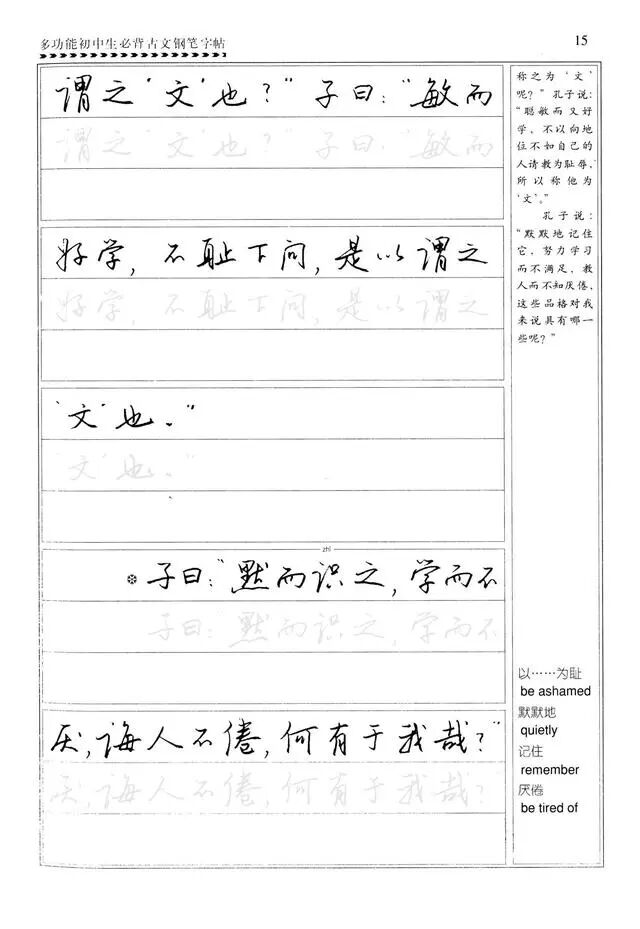 多功能初中生必背古文钢笔字帖
15
谓之‘文’也？”子曰：“敏而
谓之‘文’也？”子曰：“敏而
好学，不耻下问，是以谓之
好学，不耻下问，是以谓之
‘文’也。”
‘文’也。”
zhì
❉子曰：“默而识之，学而不
子曰：“默而识之，学而不
厌，诲人不倦，何有于我哉？”
厌，诲人不倦，何有于我哉？”
称之为‘文’
呢？”孔子说：
“聪敏而又好
学，不以向地
位不如自己的
人请教为耻辱，
所以称他为
‘文’。”
孔子说：
“默默地记住
它，努力学习
而不满足，教
人而不知厌倦，
这些品格对我
来说具有哪一
些呢？”
以……为耻
be ashamed
默默地
quietly
记住
remember
厌倦
be tired of